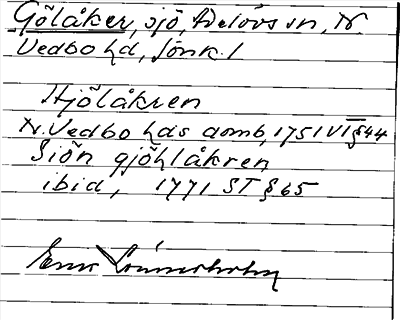 Gölåker, sjö, Adelövs sn, N.
Vedbo hd, Jönk. l
Hjölåkren
N. Vedbo hds domb, 1751 VT § 44
Siön gjöhlåkren
ibid, 1771 ST § 65
Erik